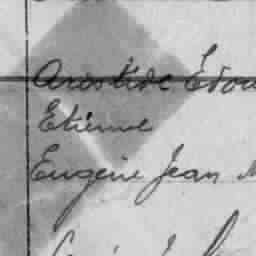 Aristide Edou
Etienne
Eugène Jean M